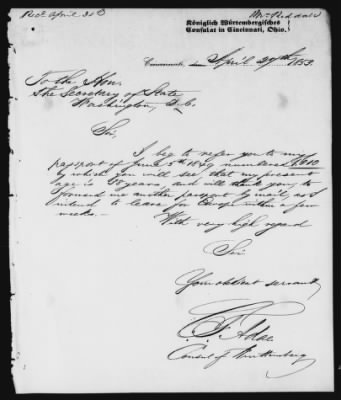 Rec'd April 30
Königlich Würtembergisches
Consulat in Cincinnati, Ohio.
Cincinnati, den April 27th 1853.
To the Hon.
the Secretary of State
Washington, D.C.
Sir,
I beg to refer you to my
passport of June 5th
by which you will see that my present
age is years, and will thank you, to
forward me another passport by mail, as I
intend to leave for Europe within a few
weeks.—
With very high regard
Sir
Your obedient servant
C. F. Adae
Consul of Wurttemberg